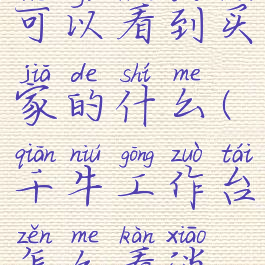 可以看到买
jiā de shí me
家的什么(
qiān niú gōng zuò tái
千牛工作台
zěn me kàn xiāo
怎么看消